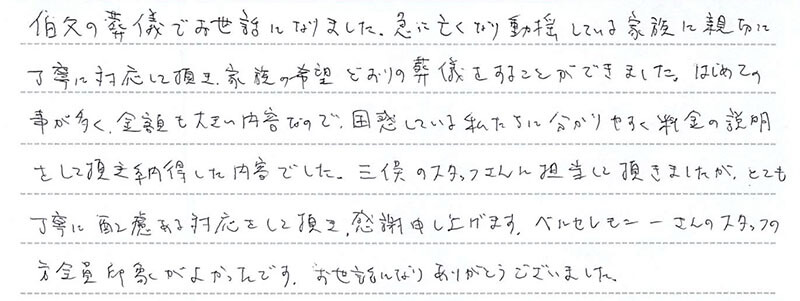 伯父の葬儀でお世話になりました。急に亡くなり動揺している家族に親切に
丁寧に対応して頂き、家族の希望どおりの葬儀をすることができました。はじめての
事が多く、金額も大きい内容なので、困惑している私たちに分かりやすく料金の説明
をして頂き納得した内容でした。三俣のスタッフさんに担当して頂きましたが、とても
丁寧に配慮ある対応をして頂き、感謝申し上げます。ベルセレモニーさんのスタッフの
方全員印象がよかったです。お世話になりありがとうございました。